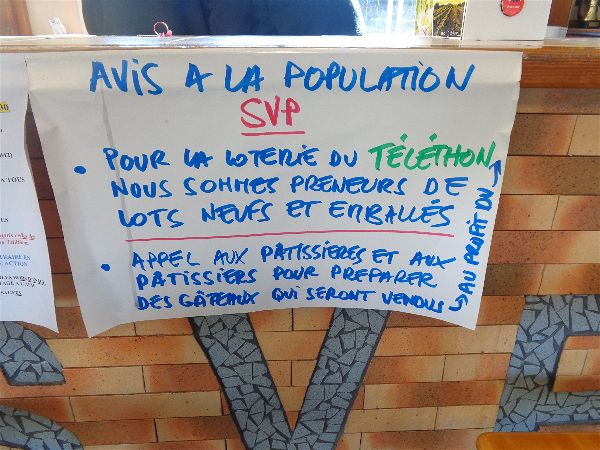 AVIS A LA POPULATION
SVP
• POUR LA LOTERIE DU TÉLÉTHON
NOUS SOMMES PRENEURS DE
LOTS NEUFS ET EMBALLÉS
• APPEL AUX PÂTISSIÈRES ET AUX
PÂTISSIERS POUR PRÉPARER
DES GÂTEAUX QUI SERONT VENDUS
AU PROFIT DU